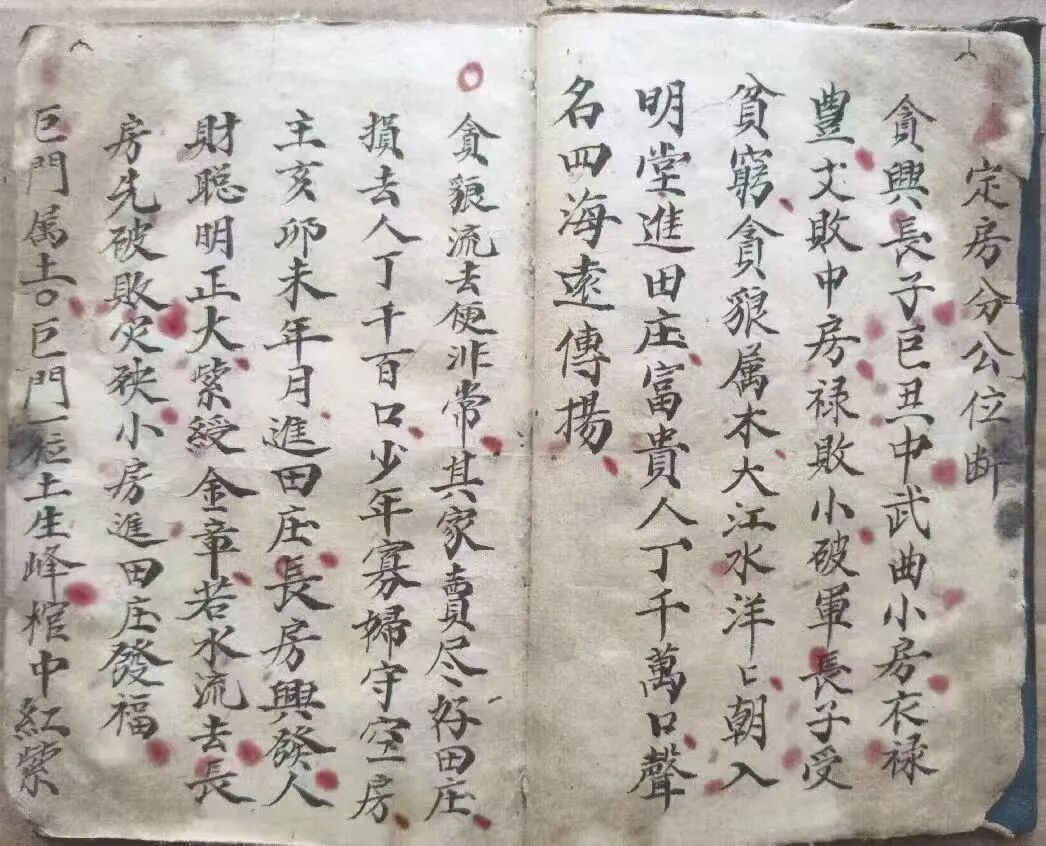 定房分公位断
貪興長子巨丑中武曲小房衣禄
豊文敗中房禄敗小破軍長子受
貧窮貪狼属木大江水洋〻朝入
明堂進田庄富貴人丁千萬口聲
名四海遠傳揚
貪狼流去便非常其家賣尽好田庄
損去人丁千百口少年寡婦守空房
主亥卯未年月進田庄長房興發人
財聡明正大紫綬金章若水流去長
房先破敗灾殃小房進田庄發福
巨門属土〇巨門一位土生峰棺中紅紫